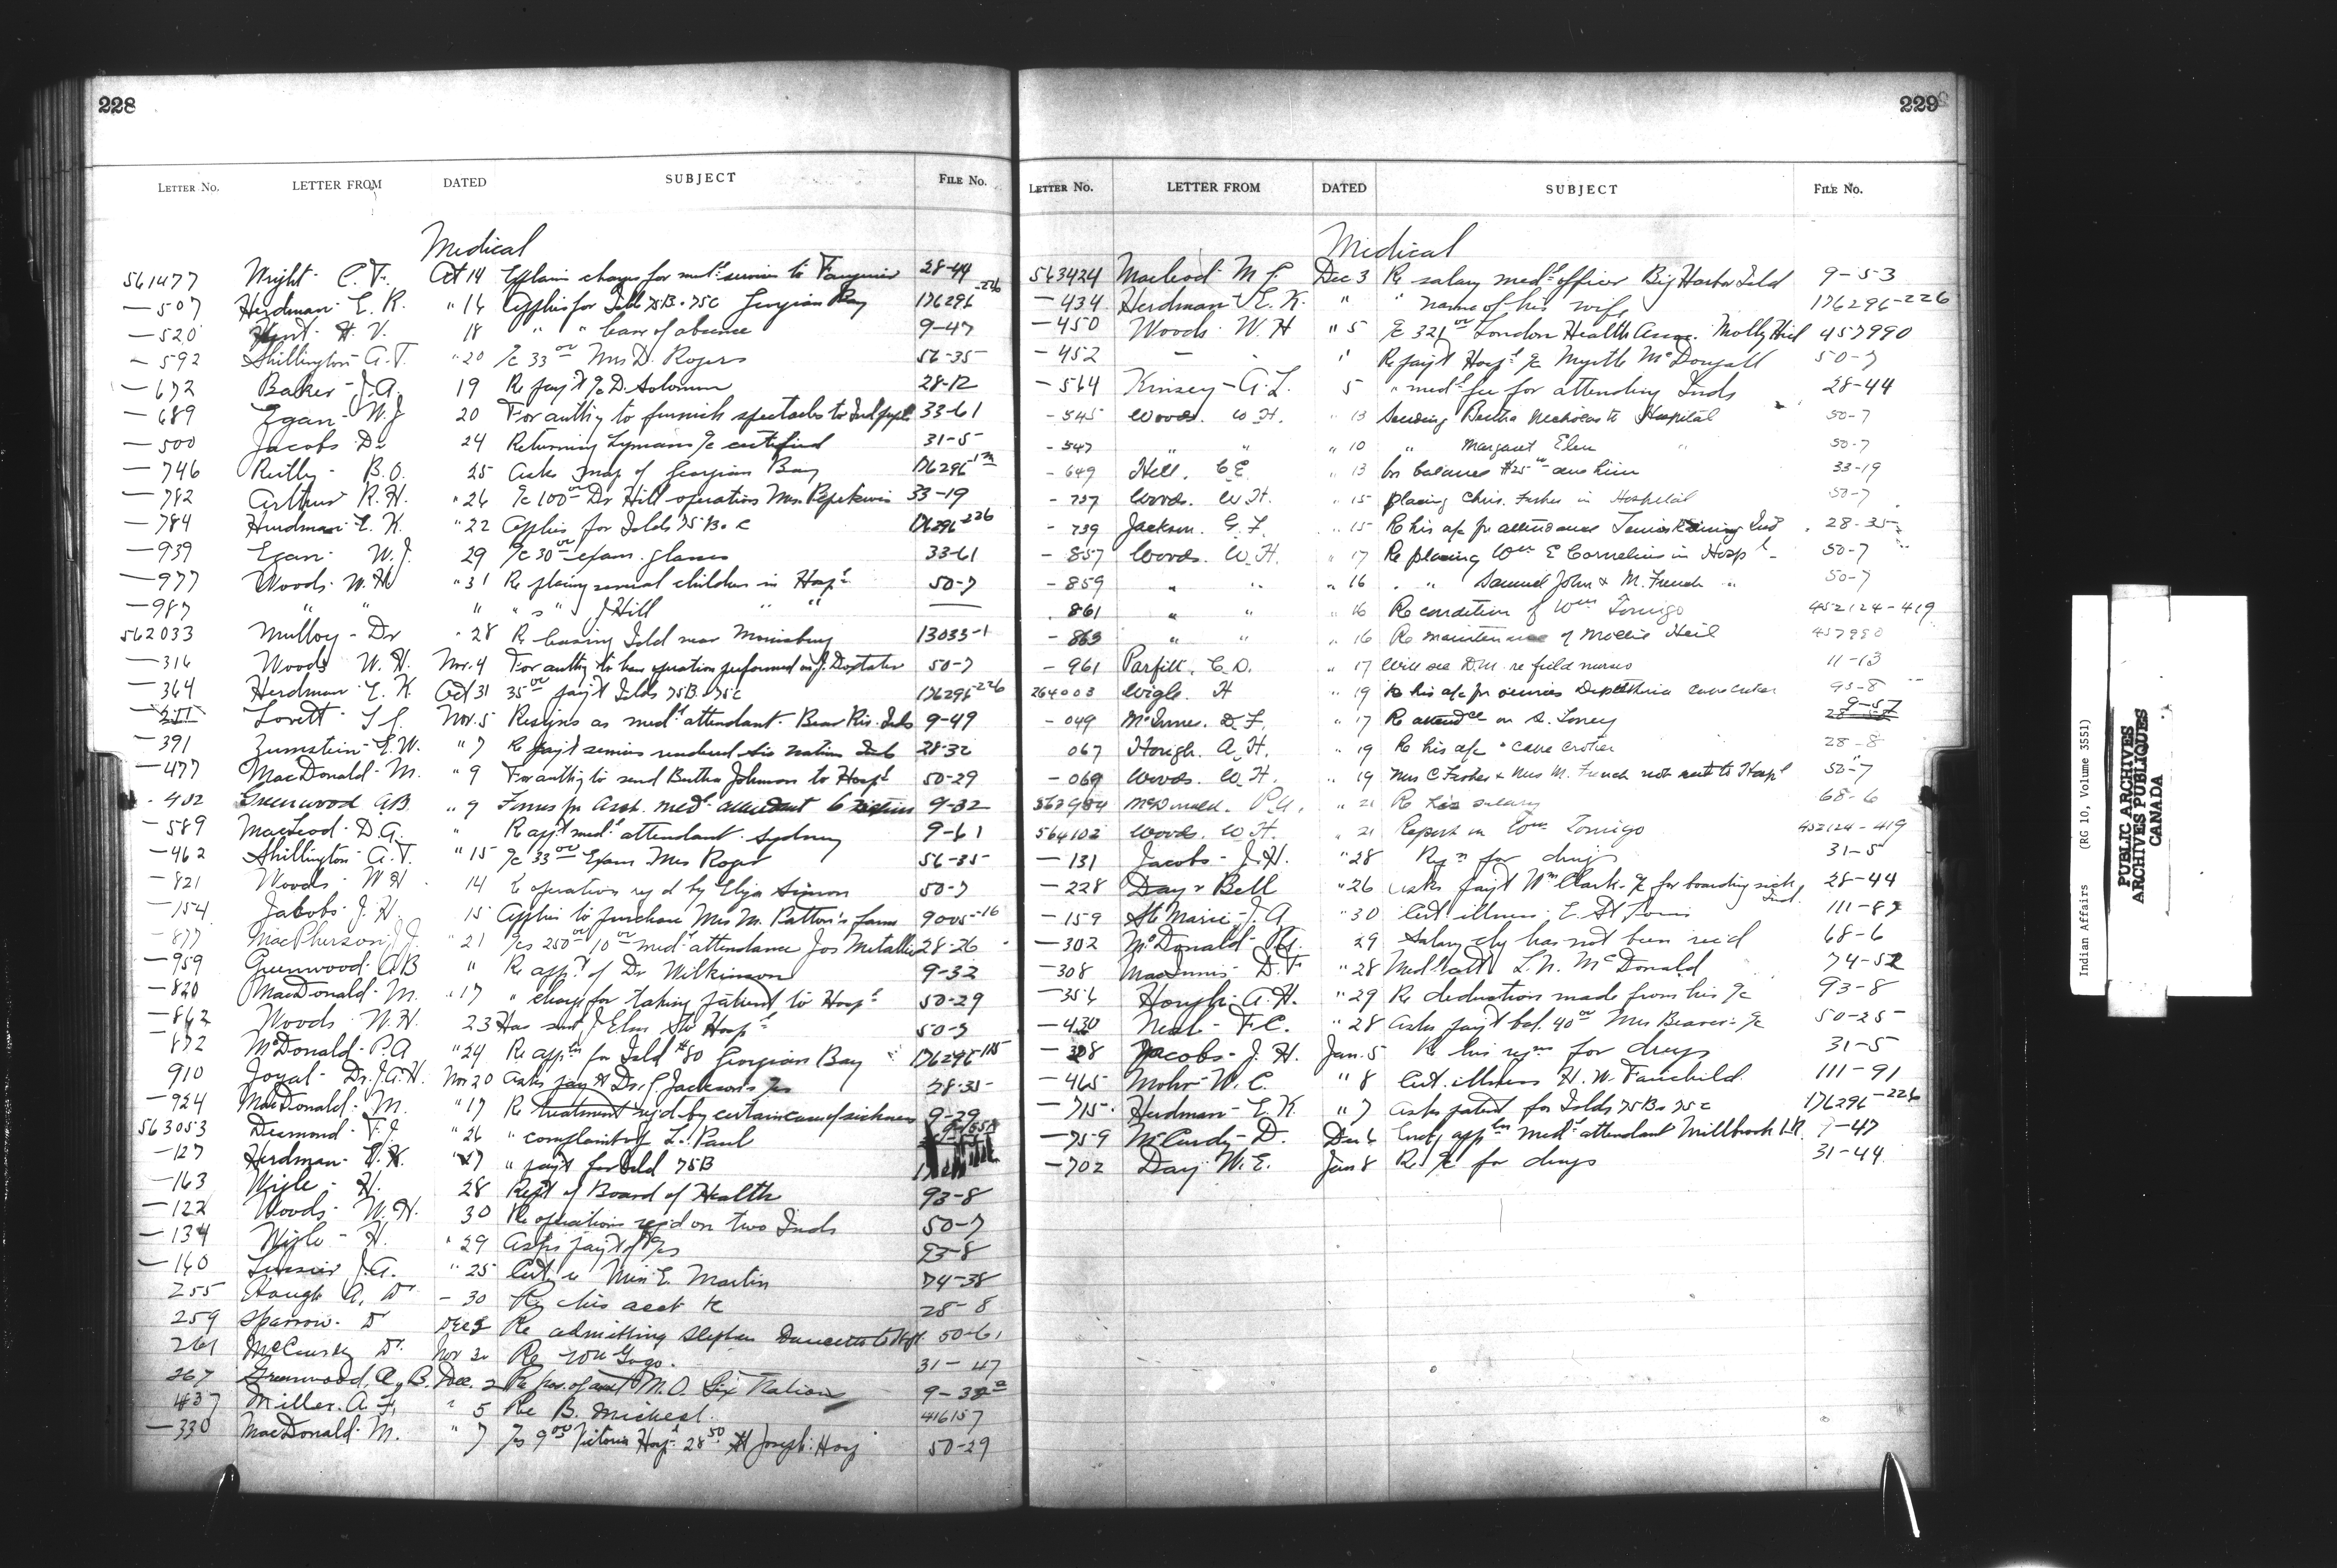 228
LETTER No. LETTER FROM DATED SUBJECT FILE No.
Medical
561477 Wright - C. T. Oct 14 Explain charges for med'l services to 28-44
-507 Herdman E. K. " 16 Applies for Islds 75B & 75C Georgian Bay 176296-226
-520 Hunt - H. V. 18 " " leave of absence 9-47
-592 Shillington A. T. " 20 a/c 33 00 Mrs D. Rogers 56-35
-672 Baker - J. A. 19 Re pay't a/c D. Solomon 28-12
-689 Egan - W. J 20 For auth'y to furnish spectacles to Ind pupil 33-61
-500 Jacobs Dr 24 Returning Lymans a/c certified 31-5
-746 - B. O. 25 Asks map of Georgian Bay 176296
-782 Arthur R. H. " 26 a/c 100 00 Dr Hill - operation Mrs 33-19
-784 Herdman E. K. " 22 Applies for Islds 75 B & C 176296-226
-939 Egan - W. J. 29 a/c 30 00 exam. glasses 33-61
-977 Woods - W. H " 31 Re placing several children in Hosp'l 50-7
-987 " " " " " J Hill " "
562033 Mulloy - Dr " 28 Re leasing Isld near Morrisburg 13033-1
-316 Woods W. H. Nov. 4 For auth'y to have operation performed on J. Doxtater 50-7
-364 Herdman E. K. Oct 31 35 00 pay't Islds 75B & 75C 176296-226
Lovett - Nov. 5 Resigns as med'l attendant - Bear Riv. Inds 9-49
-391 Zumstein - E. W. " 7 Re pay't services rendered Six Nation Inds 28-32
-477 MacDonald - M. " 9 For auth'y to send Bertha Johnson to Hosp'l 50-29
-482 Greenwood A.B. " 9 for Asst. med'l attendant 6 Nations 9-32
-589 MacLeod - D. A. " Re app't med'l attendant - Sydney 9-61
-462 Shillington A. T. " 15 a/c 33 00 Exam Mrs Roger 56-35
-821 Woods - W. H. 14 operation req'd by Elija Simon 50-7
-154 Jacobs J. H 15 Applies to purchase Mrs M. Patton's farm 9005-16
-877 MacPherson J. J. " 21 a/cs 250 00 & 10 00 med'l attendance Jos Metallic 28-26
-959 Greenwood A B " Re app't of Dr Wilkinson 9-32
-820 MacDonald - M. " 17 " charge for taking patient to Hosp'l 50-29
-862 Woods W. H. 23 Has sent J Elm to Hosp'l 50-7
872 McDonald - P. A " 24 Re app'ln for Isld #80 Georgian Bay 176296-115
910 Joyal - Dr. J. A. H. Nov 20 Asks pay't Dr. G. Jackson's a/cs 28-35
-924 MacDonald - M. " 17 Re treatment req'd by certain case of sickness 9-29
563053 Desmond - F. J. " 26 " complaint of L. Paul
-127 Herdman - E. K. " 27 " pay't for Isld 75B
-163 Wigle - H. 28 Rep't of Board of Health 93-8
-122 Woods - W. H. 30 Re operations req'd on two Inds 50-7
-134 Wigle - H. " 29 Asks pay't of a/cs 93-8
-160 J. A. " 25 Cert. re Miss E. Martin 74-38
255 Hough A, Dr - 30 Re his acct &c 28-8
259 Sparrow - Dr Dec 2 Re admitting Stephen to Hosp. 50-61
261 McCurdy Dr. Nov 30 Re Wm Gogo. 31-47
267 Greenwood, A. B. Dec. 2 Re pos. of asst M. O. Six Nations 9-32
437 Miller. A. F. " 5 Re B. Mickeal. 416157
-330 MacDonald - M. " 7 a/cs 9 00 Victoria Hosp'l 28 50 St Joseph Hosp 50-29
229
LETTER No. LETTER FROM DATED SUBJECT FILE No.
Medical
563424 Macleod - M. Dec 3 Re salary med'l officer Big Harbor Isld 9-53
-434 Herdman - E. K. " " name of his wife 176296-226
-450 Woods - W. H " 5 a/c 321 00 London Health Assoc. Molly Hiel 457990
-452 - - " Re pay't Hosp'l a/c Myrtle McDougall 50-7
-564 Kinsey - A. L. 5 " med'l fee for attending Inds 28-44
-545 Woods. W. H. " 13 Sending Bertha Nicholas to Hospital 50-7
-547 " " " 10 " Margaret Elm " 50-7
-649 Hill. C. E. " 13 Re balance $25 00 due him 33-19
-737 Woods. W. H. " 15 placing Chris. Fisher in Hospital 50-7
-739 Jackson. G. F. " 15 Re his a/c for attendance Temiskaming Ind 28-35
-857 Woods. W. H. " 17 Re placing Wm E Cornelius in Hosp'l 50-7
-859 " " " 16 " " Samuel John & M. French " 50-7
861 " " " 16 Re condition of Wm Tomigo 452124-419
-863 " " " 16 Re maintenance of Mollie Heil 457990
-961 Parfitt. C. D. " 17 Will see D.M. re field nurses 11-13
264003 Wigle. H " 19 Re his a/c for services Diphtheria 93-8
-049 McInnes. D. F. " 17 Re attend'ce on S. Toney 9-57
067 Hough. A. H. " 19 Re his a/c - case 28-8
-069 Woods. W. H. " 19 Mrs C Fisher & Mrs M. French not sent to Hosp'l 50-7
563984 McDonald. P. A. " 21 Re his salary 68-6
564102 Woods. W. H. " 21 Report on Wm Tomigo 452124-419
-131 Jacobs - J. H. " 28 Req'n for drugs 31-5
-228 Day & Bell " 26 Asks pay't Wm Clark - a/c for boarding sick Ind. 28-44
-159 Ste Marie - J. A " 30 Cert. illness, E. St Louis 111-87
-302 McDonald - P. A. 29 Salary chq has not been rec'd 68-6
-308 MacInnis - D. F. " 28 Med'l att'd L. N. McDonald 74-52
-356 Hough - A. H. " 29 Re deductions made from his a/c 93-8
-430 Neal - F. C. " 28 Asks pay't bal. 40 00 Mrs Beaver's a/c 50-25
-328 Jacobs - J. H. Jan. 5 Re his req'ns for drugs 31-5
-465 Mohr - W. C. " 8 Cert. illness H. W. Fairchild 111-91
-715 Herdman - E. K. " 7 Asks patent for Islds 75B & 75C 176296-226
-759 McCurdy - D. Dec 6 app'ln med'l attendant Millbrook I.R. 9-47
-702 Day - W. E. Jan 8 Re a/c for drugs 31-44
Indian Affairs (RG 10, Volume 3551)
PUBLIC ARCHIVES
ARCHIVES PUBLIQUES
CANADA